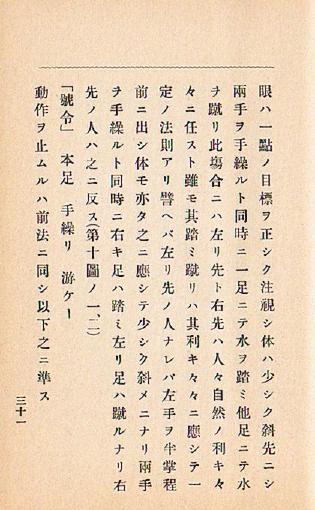 眼ハ一點ノ目標ヲ正シク注視シ体ハ少シク斜先ニシ
兩手ヲ手繰ルト同時ニ一足ニテ水ヲ踏ミ他足ニテ水
ヲ蹴リ此塲合ニハ左リ先ト右先ハ人々自然ノ利キ々
々ニ任スト雖モ其踏ミ蹴リハ其利キ々々ニ應シテ一
定ノ法則アリ譬ヘバ左リ先ノ人ナレバ左手ヲ半掌程
前ニ出シ体モ亦タ之ニ應シテ少シク斜メニナリ兩手
ヲ手繰ルト同時ニ右キ足ハ踏ミ左リ足ハ蹴ルナリ右
先ノ人ハ之ニ反ス(第十圖ノ一、二)
「號令」 本足 手繰リ 游ケー
動作ヲ止ムルハ前法ニ同シ以下之ニ準ス
三十一